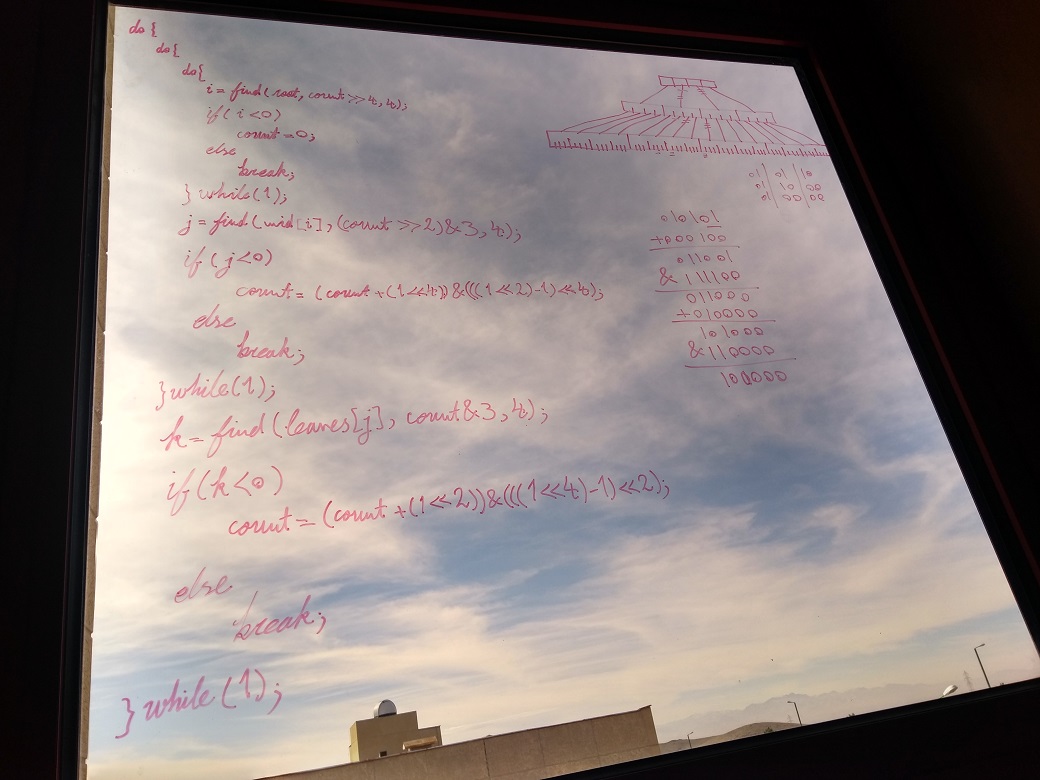 do {
do {
do {
i = find(root, count >> 4, 4);
if (i < 0)
count = 0;
else
break;
} while (1);
j = find(mid[i], (count >> 2) & 3, 4);
if (j < 0)
count = (count + (1 << 4)) & (((1 << 2) - 1) << 4);
else
break;
} while (1);
k = find(leaves[j], count & 3, 4);
if (k < 0)
count = (count + (1 << 2)) & (((1 << 4) - 1) << 2);
else
break;
} while (1);
01 | 01 | 10
01 | 10 | 00
01 | 00 | 00
010101
+000100
011001
& 111100
011000
+010000
101000
& 110000
100000